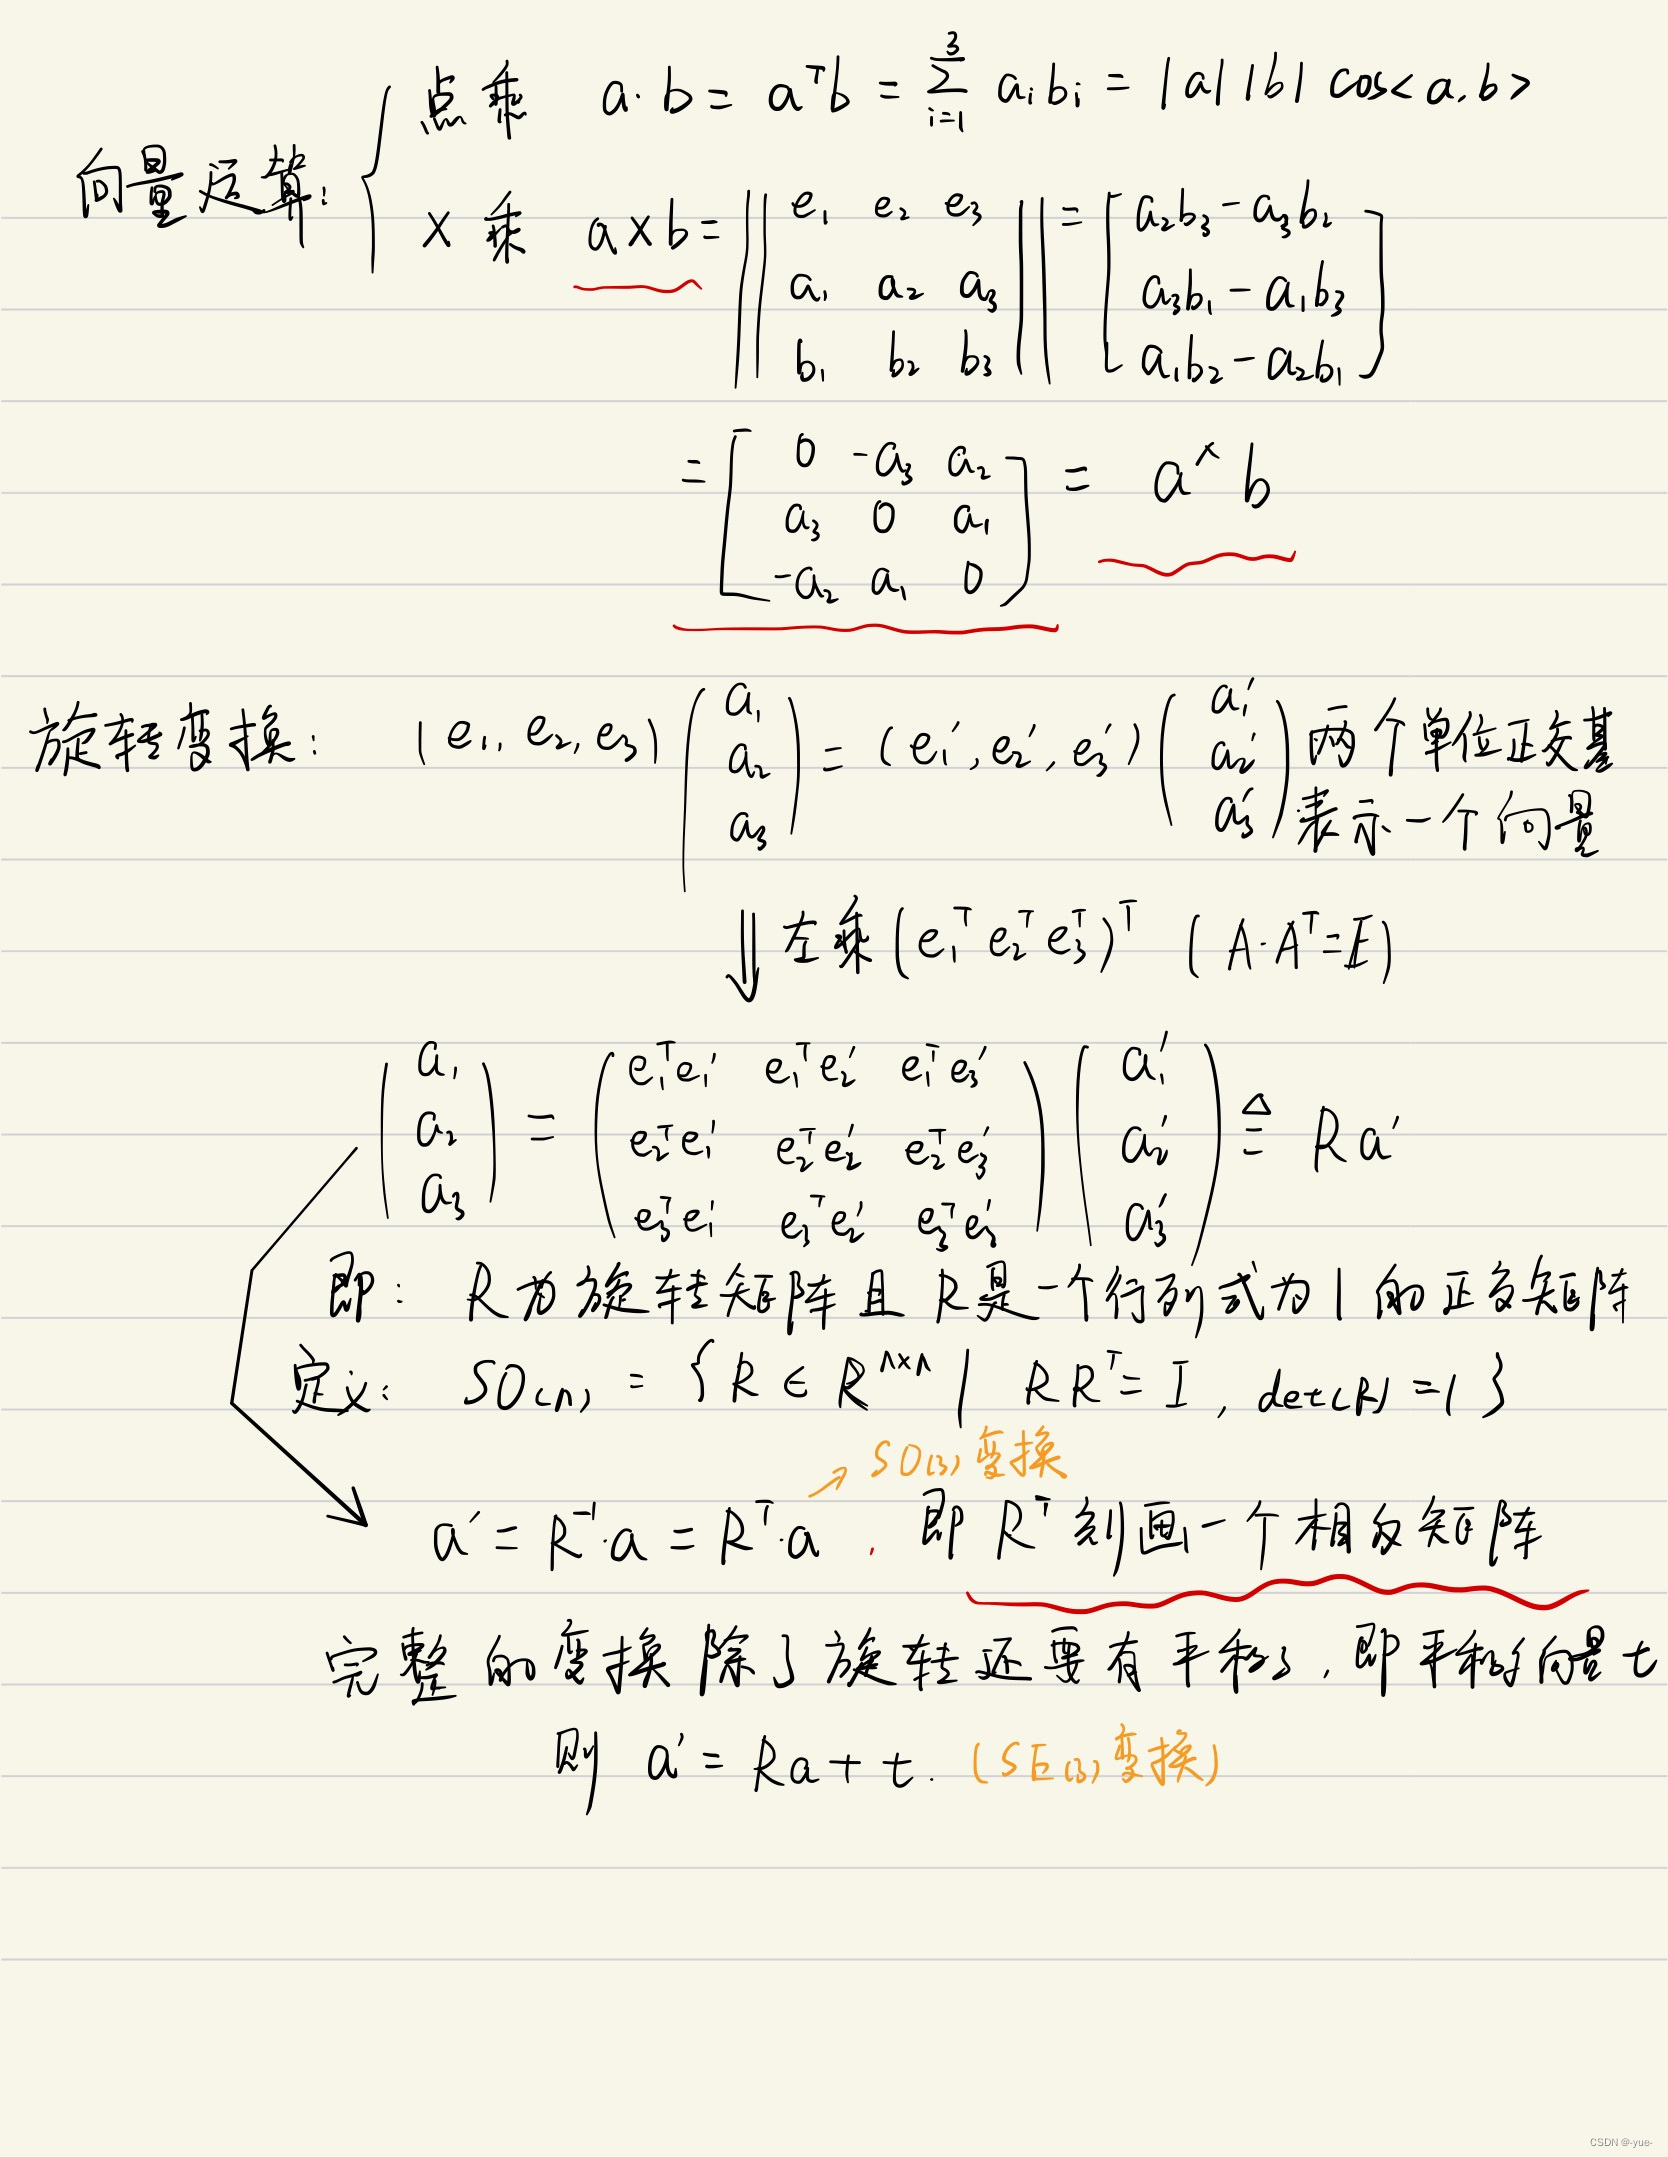 向量运算:
点乘 a·b = aᵀb = Σ_{i=1}^{3} aᵢbᵢ = |a||b| cos<a,b>
×乘 a×b = || e₁ e₂ e₃ || = [ a₂b₃-a₃b₂ ]
a₁ a₂ a₃ a₃b₁-a₁b₃
b₁ b₂ b₃ a₁b₂-a₂b₁
= [ 0 -a₃ a₂ ] = a^× b
a₃ 0 a₁
-a₂ a₁ 0
旋转变换: (e₁, e₂, e₃) ( a₁ ) = (e₁', e₂', e₃') ( a₁' ) 两个单位正交基
a₂ a₂'
a₃ a₃' 表示一个向量
⇓ 左乘 (e₁ᵀ e₂ᵀ e₃ᵀ)ᵀ (A·Aᵀ=E)
( a₁ ) = ( e₁ᵀe₁' e₁ᵀe₂' e₁ᵀe₃' ) ( a₁' ) ≜ Ra'
a₂ e₂ᵀe₁' e₂ᵀe₂' e₂ᵀe₃' a₂'
a₃ e₃ᵀe₁' e₃ᵀe₂' e₃ᵀe₃' a₃'
即: R为旋转矩阵且R是一个行列式为1的正交矩阵
定义: SO(n) = {R ∈ R^{n×n} | RRᵀ = I, det(R) = 1}
→ SO(3)变换
a' = R⁻¹·a = Rᵀ·a, 即Rᵀ刻画一个相反矩阵
完整的变换除了旋转还要有平移, 即平移向量t
则 a' = Ra + t. (SE(3)变换)
CSDN @-yue-